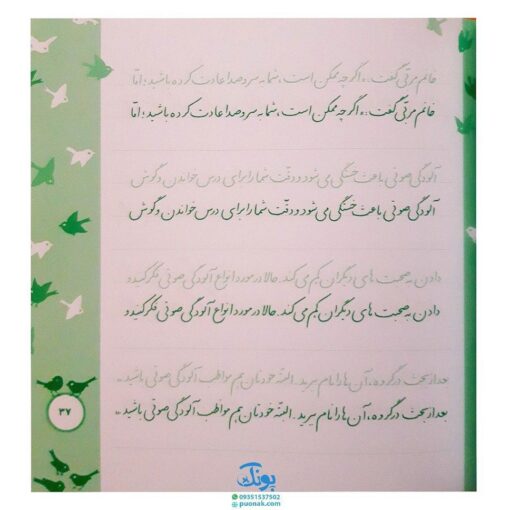 خانم مربّی گفت: «اگرچه ممکن است، شما به سر و صدا عادت کرده باشید؛ امّا
خانم مربّی گفت: «اگرچه ممکن است، شما به سر و صدا عادت کرده باشید؛ امّا
آلودگی صوتی باعث خستگی می شود و دقّت شما را برای درس خواندن و گوش
آلودگی صوتی باعث خستگی می شود و دقّت شما را برای درس خواندن و گوش
دادن به صحبت های دیگران کم می کند. حالا در مورد انواع آلودگی صوتی فکر کنید و
دادن به صحبت های دیگران کم می کند. حالا در مورد انواع آلودگی صوتی فکر کنید و
بعد از بحث در گروه، آن ها را نام ببرید. البتّه خودتان هم مواظب آلودگی صوتی باشید.»
بعد از بحث در گروه، آن ها را نام ببرید. البتّه خودتان هم مواظب آلودگی صوتی باشید.»
۳۷
پونک
09351537502
puonak.com